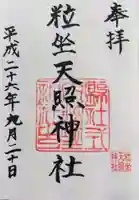 奉拝
粒坐天照神社
平成二十六年九月二十日